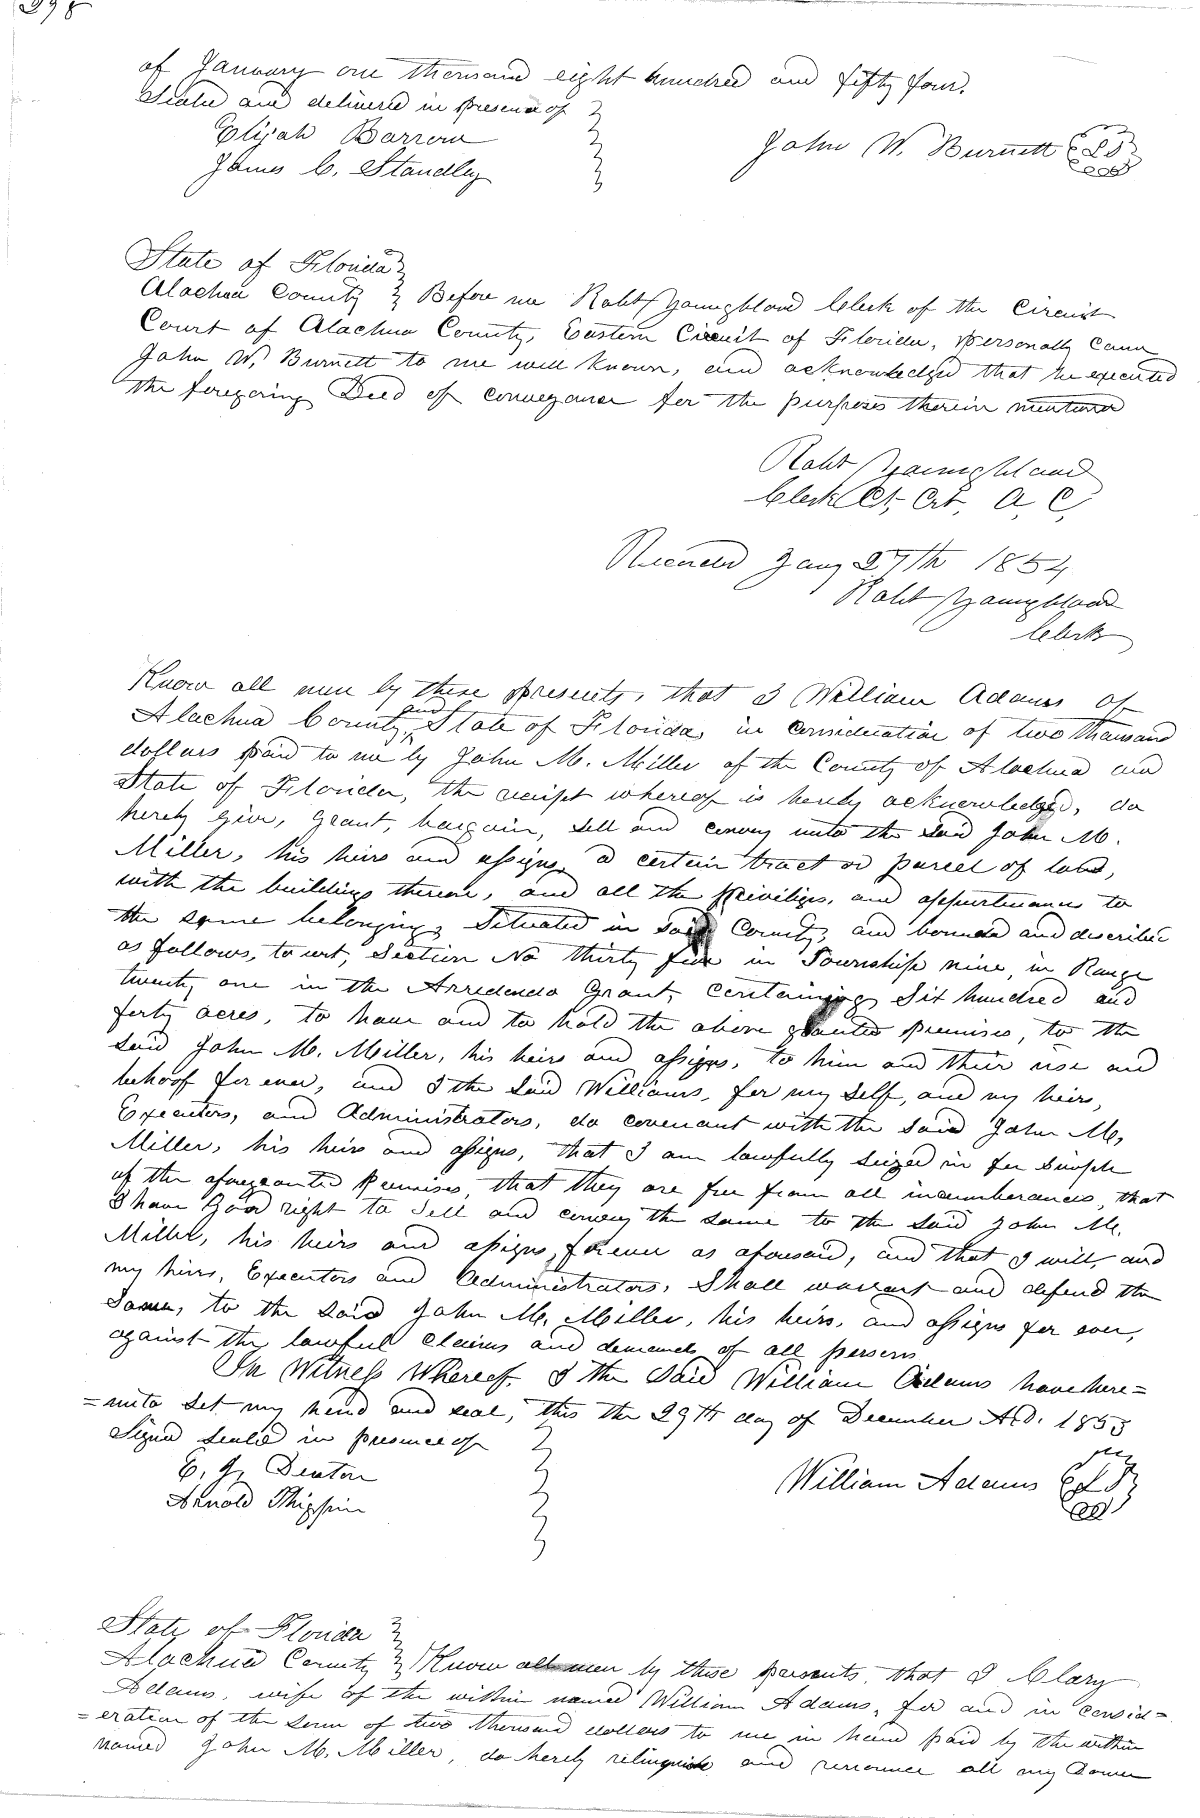 298
of January one thousand eight hundred and fifty four.
Seald and delivered in presence of
Elijah Barrow
John W. Burnett LS
James C. Standley
State of Florida
Alachua County Before me Robt Youngblood Clerk of the Circuit
Court of Alachua County, Eastern Circuit of Florida, personally came
John W. Burnett to me well known, and acknowledged that he executed
the foregoing Deed of conveyance for the purposes therein mentioned
Robt Youngblood
Clerk Ct, Crt, A, C,
Recorded Jany 27th 1854
Robt Youngblood
Clerk
Know all men by these presents, that I William Adams of
Alachua County, and State of Florida, in consideration of two thousand
dollars paid to me by John M. Miller of the County of Alachua and
State of Florida, the receipt whereof is hereby acknowledged, do
hereby give, grant, bargain, sell and convey unto the said John M.
Miller, his heirs and assigns, a certain tract or parcel of land,
with the buildings thereon, and all the priviliges, and appurtenances to
the same belonging, Situated in said County, and bounded and described
as follows, to wit, Section No thirty five in Township nine, in Range
twenty one in the Arredondo Grant, Containing Six hundred and
forty acres, to have and to hold the above granted premises, to the
said John M. Miller, his heirs and assigns, to him and their use and
behoof for ever, and I the said Williams, for my self, and my heirs,
Executors, and Administrators, do covenant with the said John M,
Miller, his heirs and assigns, that I am lawfully seized in fee simple
of the aforegranted premises, that they are free from all incumberances, that
I have Good right to Sell and convey the same to the said John M.
Miller, his heirs and assigns, forever as aforesaid, and that I will, and
my heirs, Executors and Administrators, Shall warrant and defend the
Same, to the said John M. Miller, his heirs, and assigns for ever,
against the lawful claims and demands of all persons
In Witness Whereof, I the Said William Adams have here=
=unto set my hand and seal, this the 29th day of December A.D. 1853
Signed sealed in presence of
E. J. Denton
William Adams LS
Arnold Thippin
State of Florida
Alachua County Know all men by these presents, that I Clary
Adams, wife of the within named William Adams, for and in consid=
=eration of the sum of two thousand dollars to me in hand paid by the within
named John M. Miller, do hereby relinquish and renounce all my Dower